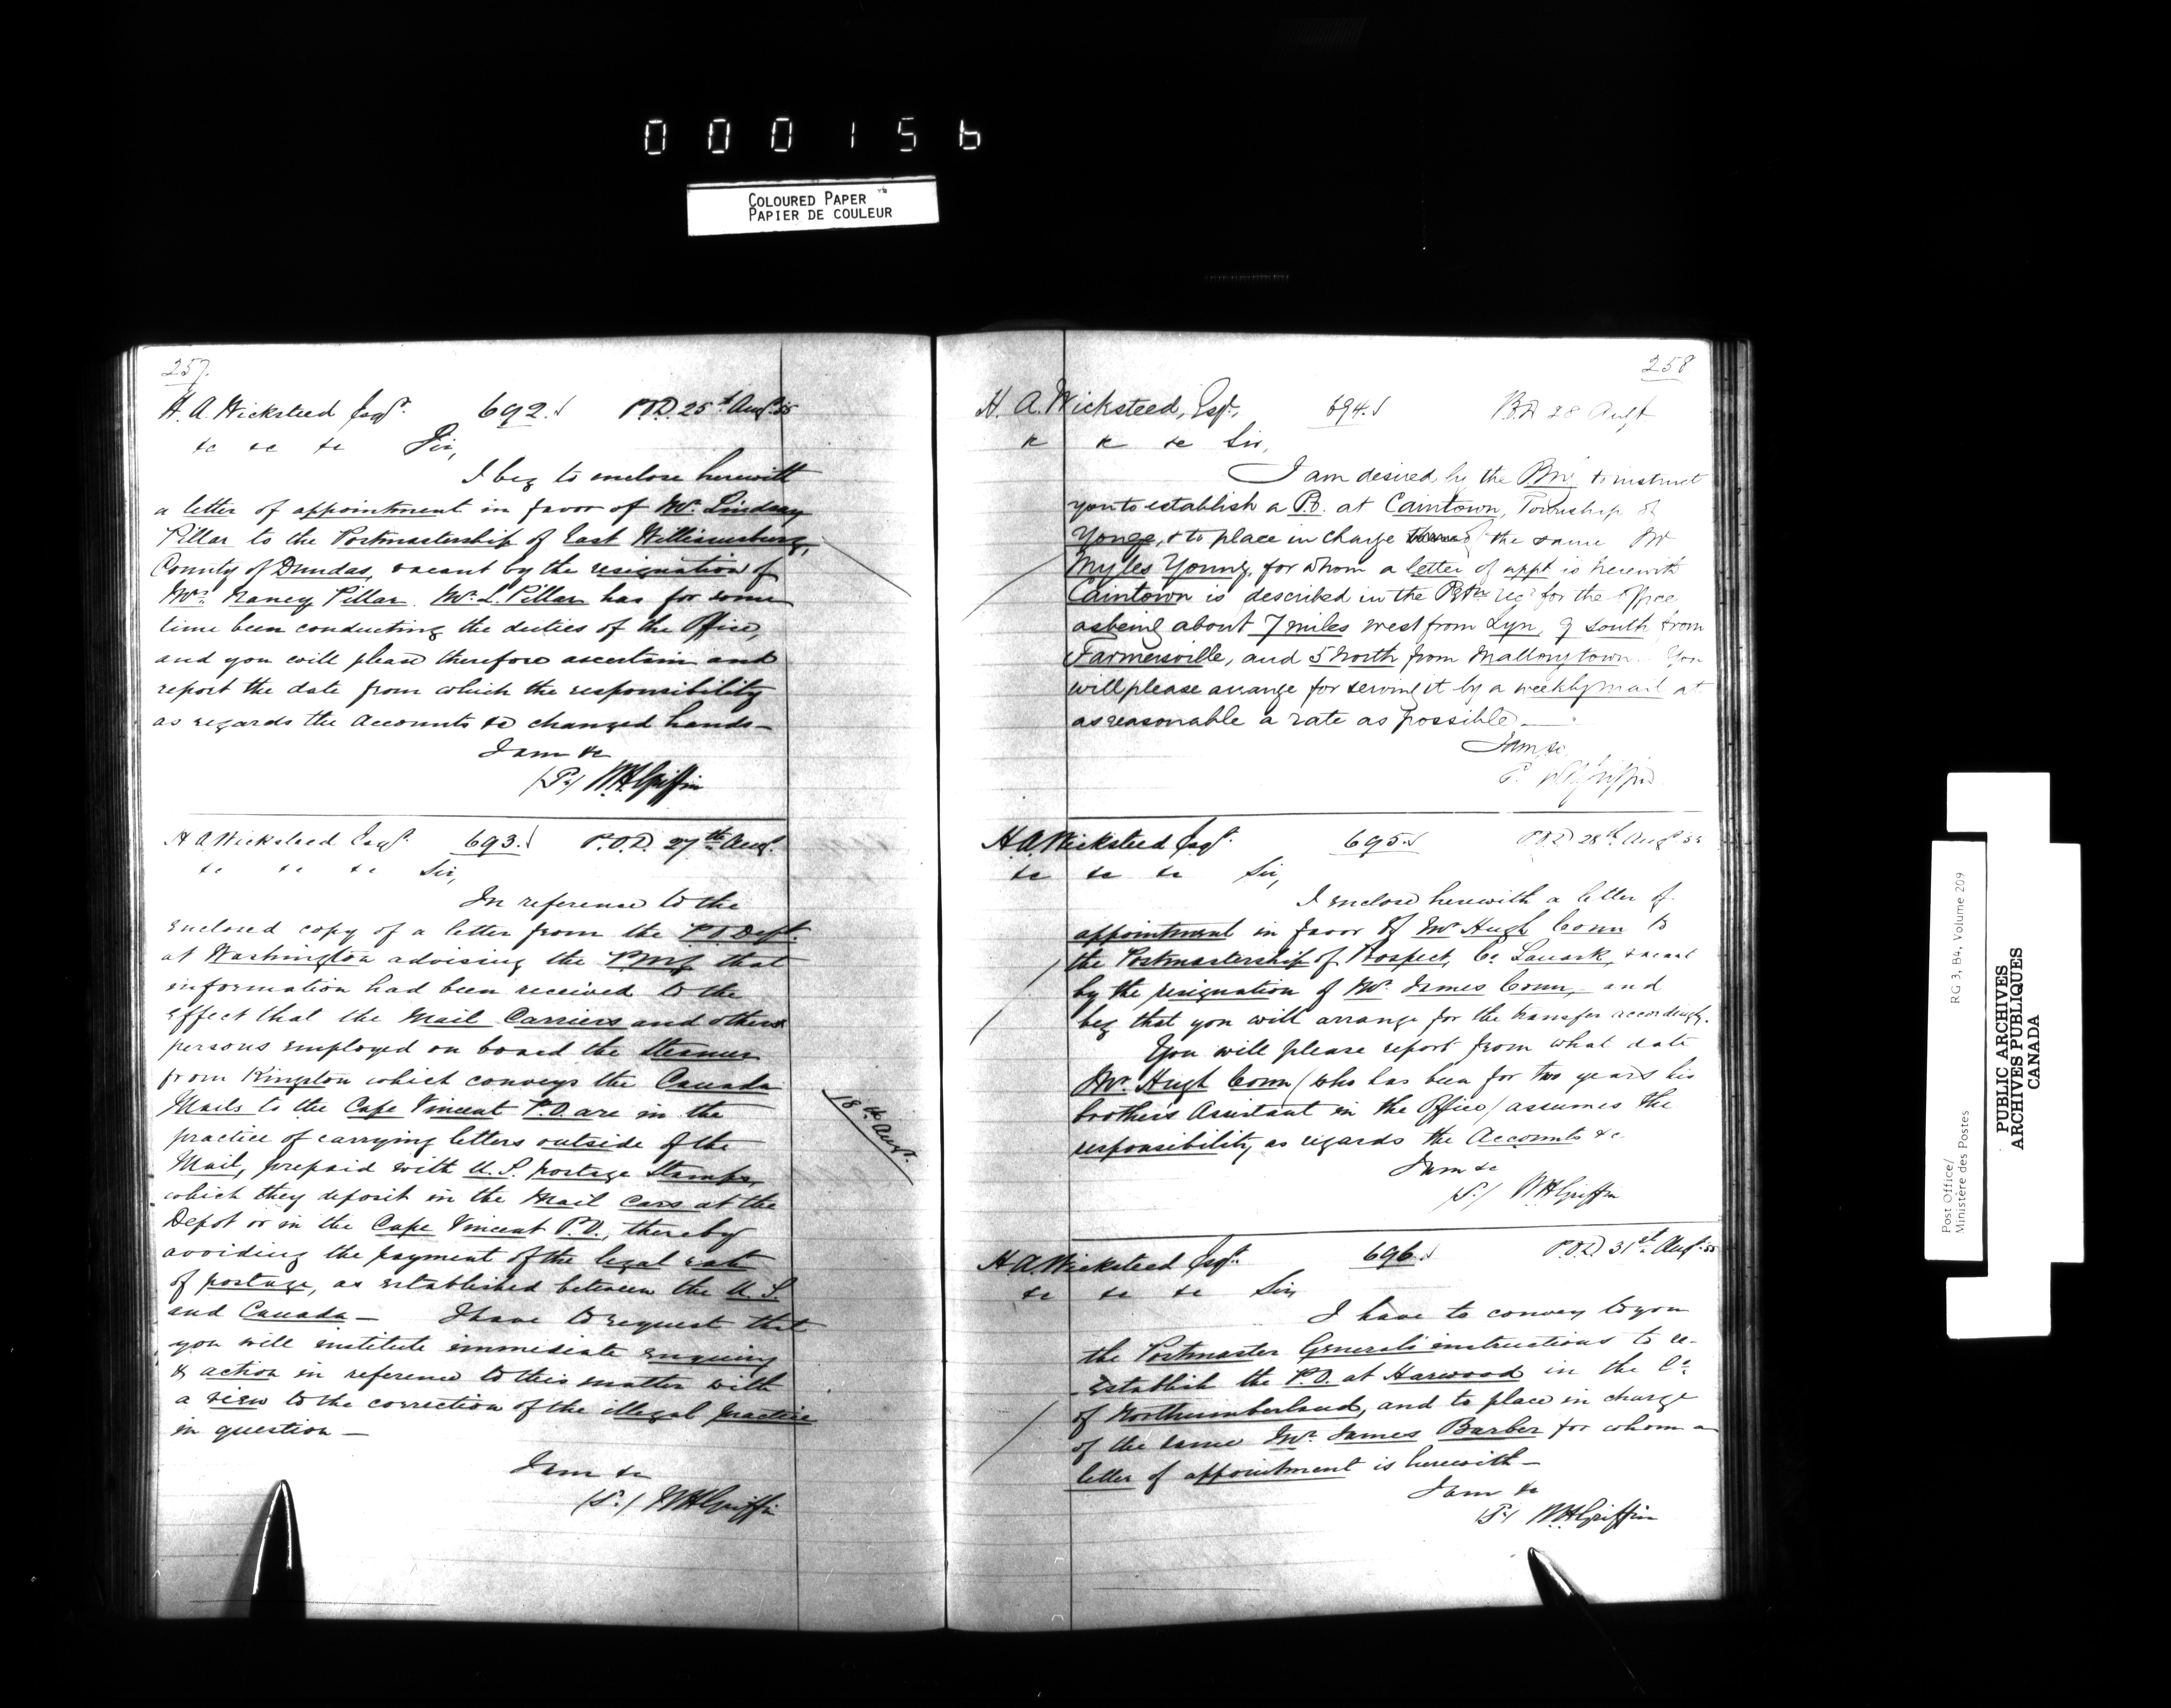 000156
COLOURED PAPER
PAPIER DE COULEUR
257.
H. A. Wicksteed Esqr. 692.S P.O.D. 25th Augt. 55
&c &c &c Sir,
I beg to enclose herewith
a letter of appointment in favor of Mr. Lindsay
Pillar to the Postmastership of East Williamsburg,
County of Dundas, vacant by the resignation of
Mrs. Nancy Pillar. Mr. L. Pillar has for some
time been conducting the duties of the Office,
and you will please therefore ascertain and
report the date from which the responsibility
as regards the Accounts &c changed hands—
I am &c
(S.) W H Griffin
H A Wicksteed Esqr. 693.S P.O.D. 27th Augt.
&c &c &c Sir,
In reference to the
enclosed copy of a letter from the P.O. Dept.
at Washington advising the P.M.G. that
information had been received to the
effect that the Mail Carriers and others
persons employed on board the Steamer
from Kingston which conveys the Canada
Mails to the Cape Vincent P.O. are in the
practice of carrying letters outside of the
Mail, prepaid with U.S. postage Stamps,
which they deposit in the Mail Cars at the
Depot or in the Cape Vincent P.O., thereby
avoiding the payment of the legal rate
of postage, as established between the U.S.
and Canada— I have to request that
you will institute immediate enquiry
& action in reference to this matter with
a view to the correction of the illegal practice
in question—
I am &c
(S.) W H Griffin
18th Augt.
258
H. A. Wicksteed, Esqr. 694.S P.O.D 28 Augt
&c &c &c Sir,
I am desired by the P.M.G. to instruct
you to establish a P.O. at Caintown, Township of
Yonge, & to place in charge of the same Mr
Myles Young, for whom a letter of appt is herewith
Caintown is described in the Petn reqg for the Office
as being about 7 miles west from Lyn, 9 South from
Farmersville, and 5 North from Mallorytown. You
will please arrange for serving it by a weekly mail at
as reasonable a rate as possible—
I am &c
S. W H Griffin
H. A. Wicksteed Esqr. 695.S P.O.D 28th Augt 55
&c &c &c Sir,
I enclose herewith a letter of
appointment in favor of Mr Hugh Conn to
the Postmastership of Prospect, Co. Lanark, vacant
by the resignation of Mr. James Conn,— and
beg that you will arrange for the transfer accordingly.
You will please report from what date
Mr. Hugh Conn (who has been for two years his
brothers Assistant in the Office) assumes the
responsibility as regards the Accounts &c
I am &c
(S.) W H Griffin
H. A. Wicksteed Esqr. 696.S P.O.D 31st Augt. 55
&c &c &c Sir,
I have to convey to you
the Postmaster Generals instructions to re-
-establish the P.O. at Harwood in the Co.
of Northumberland, and to place in charge
of the same Mr. James Barber for whom a
letter of appointment is herewith—
I am &c
(S.) W H Griffin
Post Office/
Ministère des Postes
RG 3, B4, Volume 209
PUBLIC ARCHIVES
ARCHIVES PUBLIQUES
CANADA